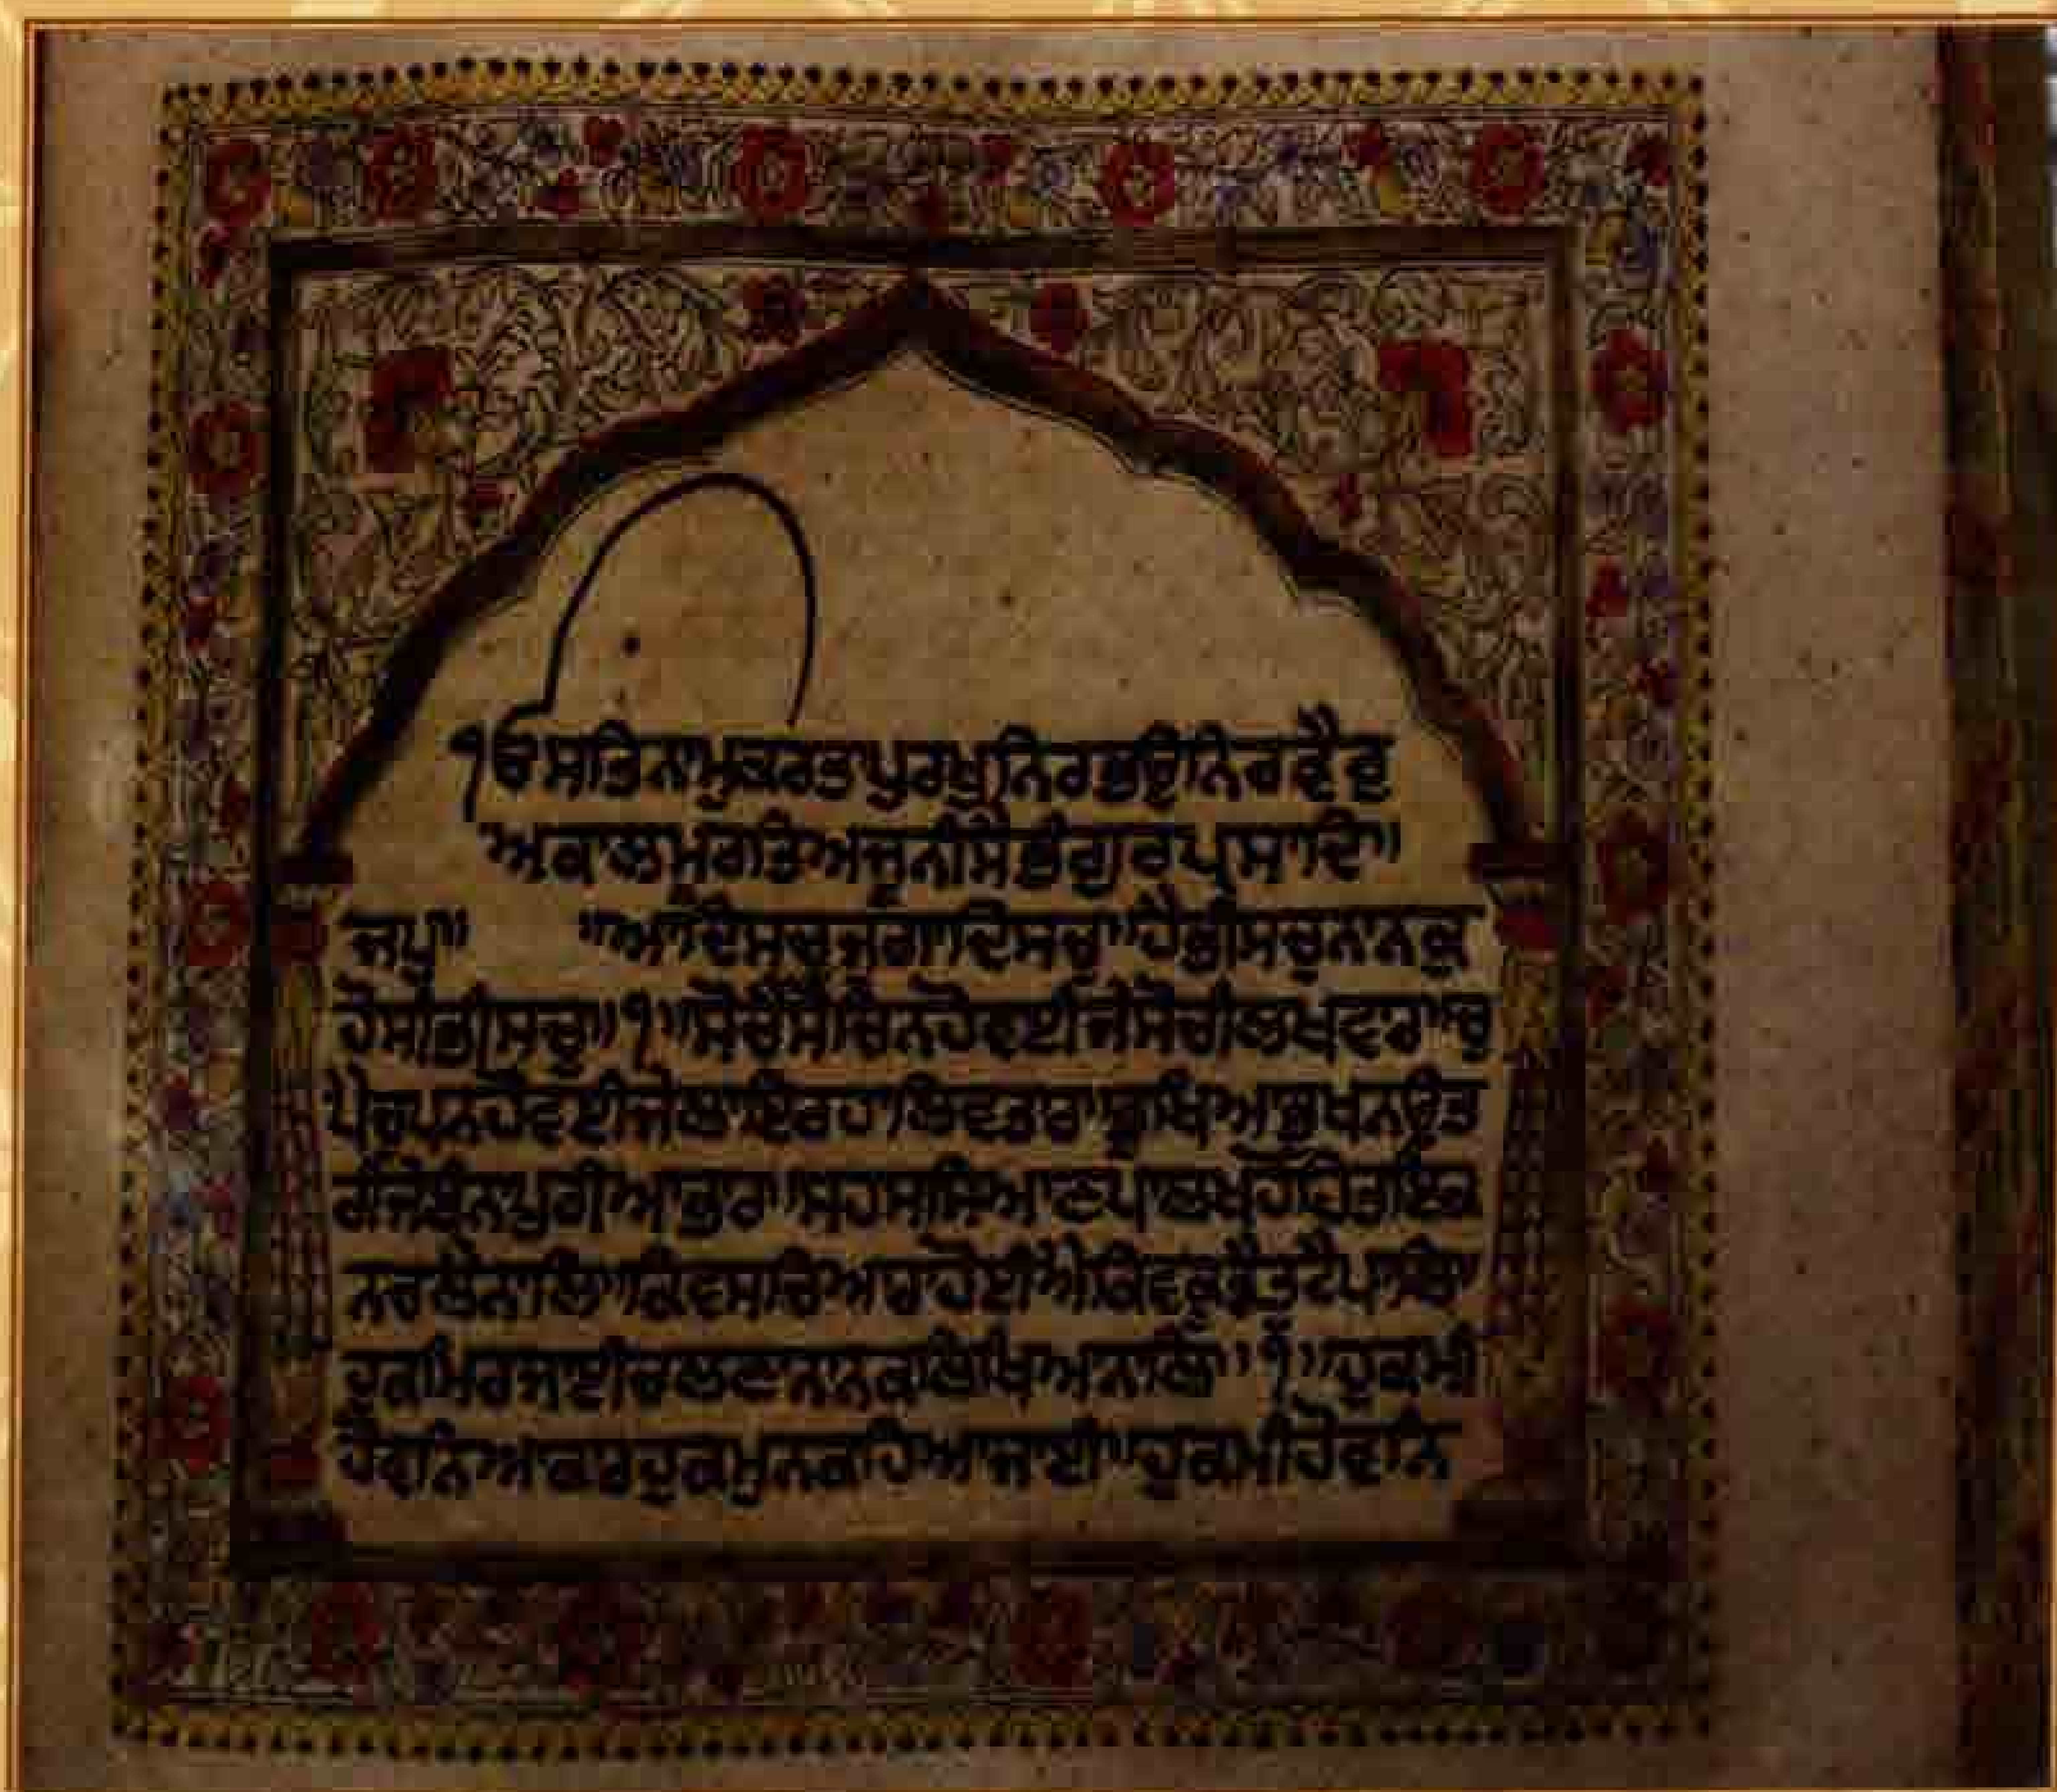 ੴਸਤਿਨਾਮੁਕਰਤਾਪੁਰਖੁਨਿਰਭਉਨਿਰਵੈਰੁ
ਅਕਾਲਮੂਰਤਿਅਜੂਨੀਸੈਭੰਗੁਰਪ੍ਰਸਾਦਿ॥
ਜਪੁ॥ ॥ਆਦਿਸਚੁਜੁਗਾਦਿਸਚੁ॥ਹੈਭੀਸਚੁਨਾਨਕ
ਹੋਸੀਭੀਸਚੁ॥੧॥ਸੋਚੈਸੋਚਿਨਹੋਵਈਜੇਸੋਚੀਲਖਵਾਰ॥ਚੁ
ਪੈਚੁਪਨਹੋਵਈਜੇਲਾਇਰਹਾਲਿਵਤਾਰ॥ਭੁਖਿਆਭੁਖਨਉਤ
ਰੀਜੇਬੰਨਾਪੁਰੀਆਭਾਰ॥ਸਹਸਸਿਆਣਪਾਲਖਹੋਹਿਤਇਕ
ਨਚਲੈਨਾਲਿ॥ਕਿਵਸਚਿਆਰਾਹੋਈਐਕਿਵਕੂੜੈਤੁਟੈਪਾਲਿ॥
ਹੁਕਮਿਰਜਾਈਚਲਣਾਨਾਨਕਲਿਖਿਆਨਾਲਿ॥੧॥ਹੁਕਮੀ
ਹੋਵਨਿਆਕਾਰਹੁਕਮੁਨਕਹਿਆਜਾਈ॥ਹੁਕਮੀਹੋਵਨਿ